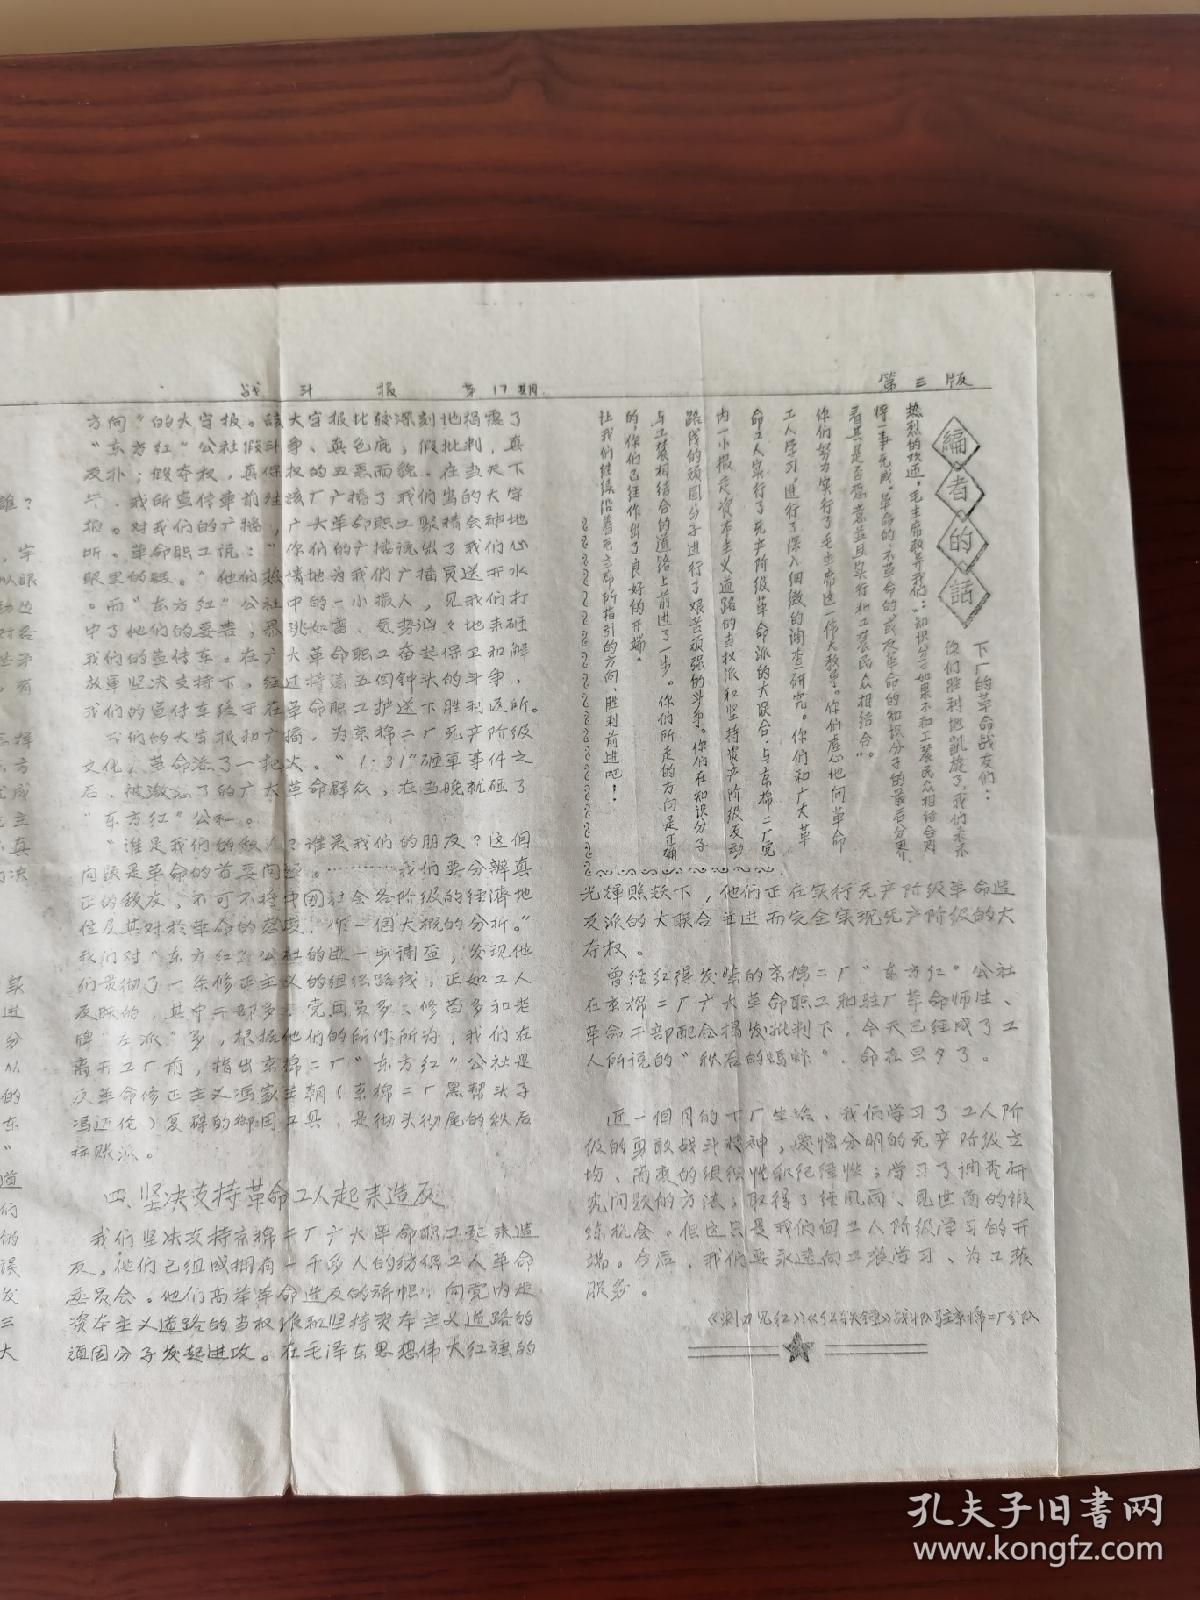 战斗报 第17期
第三版
方向"的大字报。该大字报比较深刻地揭露了
"东方红"公社假斗争、真包庇,假批判,真
反扑;假夺权,真保权的丑恶面貌。在当天下
午,我所宣传车前往该厂广播了我们写的大字
报。对我们的广播,广大革命职工聚精会神地
听。革命职工说:"你们的广播说出了我们心
眼里的话。"他们热情地为我们广播员送开水
。而"东方红"公社中的一小撮人,见我们打
中了他们的要害,暴跳如雷、气势汹々地来砸
我们的宣传车。在广大革命职工奋起保卫和解
放军坚决支持下,经过将近五個钟头的斗争,
我们的宣传车终于在革命职工护送下胜利返所。
我们的大字报和广播,为京棉二厂无产阶级
文化大革命添了一把火。"1·31"砸车事件之
后,被激怒了的广大革命群众,在当晚就砸了
"东方红"公社。
"谁是我们的敌人?谁是我们的朋友?这個
问题是革命的首要问题。………我们要分辨真
正的敌友,不可不将中国社会各阶级的经济地
位及其对於革命的态度,作一個大概的分析。"
我们对"东方红"公社的进一步调查,发现他
们贯彻了一条修正主义的组织路线,正如工人
反映的,其中干部多、党团员多、修苗多和老
牌"左派"多,根据他们的所作所为,我们在
离开工厂前,指出京棉二厂"东方红"公社是
反革命修正主义冯家王朝(京棉二厂黑帮头子
冯 )复辟的御用工具,是彻头彻尾的秋后
标账派。
四、坚决支持革命工人起来造反
我们坚决支持京棉二厂广大革命职工起来造
反,他们已组成拥有一千多人的纺保工人革命
委员会。他们高举革命造反的旗帜,向党内走
资本主义道路的当权派和坚持资本主义道路的
顽固分子发起进攻。在毛泽东思想伟大红旗的
編者的話
下厂的革命战友们:
你们胜利地凯旋了,我们表示
热烈的欢迎。毛主席教导我们:"知识分子如果不和工农民众相结合,则
将一事无成。革命的不革命的或反革命的知识分子的最后分界,
看其是否愿意並且实行和工农民众相结合"。
你们努力实行了毛主席这一伟大教导。你们虚心地向革命
工人学习,进行了深入细微的调查研究。你们和广大革
命工人实行了无产阶级革命派的大联合,与京棉二厂党
内一小撮走资本主义道路的当权派和坚持资产阶级反动
路线的顽固分子进行了艰苦顽强的斗争。你们在知识分子
与工农相结合的道路上前进了一步。你们所走的方向是正确
的,你们已经作出了良好的开端。
让我们继续沿着毛主席所指引的方向,胜利前进吧!
光辉照跃下,他们正在实行无产阶级革命造
反派的大联合並进而完全实现无产阶级的大
夺权。
曾经红得发紫的京棉二厂"东方红"公社
在京棉二厂广大革命职工和驻厂革命师生、
革命干部配合揭发批判下,今天已经成了工
人所说的"秋后的蚂蚱",命在旦夕了。
近一個月的下厂生活,我们学习了工人阶
级的勇敢战斗精神,爱憎分明的无产阶级立
场、高度的组织性和纪律性;学习了调查研
究问题的方法;取得了经风雨、见世面的锻
炼机会。但这只是我们向工人阶级学习的开
端。今后,我们要永远向工农学习、为工农
服务。
《刺刀见红》《红铁锤》战斗队驻京棉二厂分队
孔夫子旧书网
www.kongfz.com